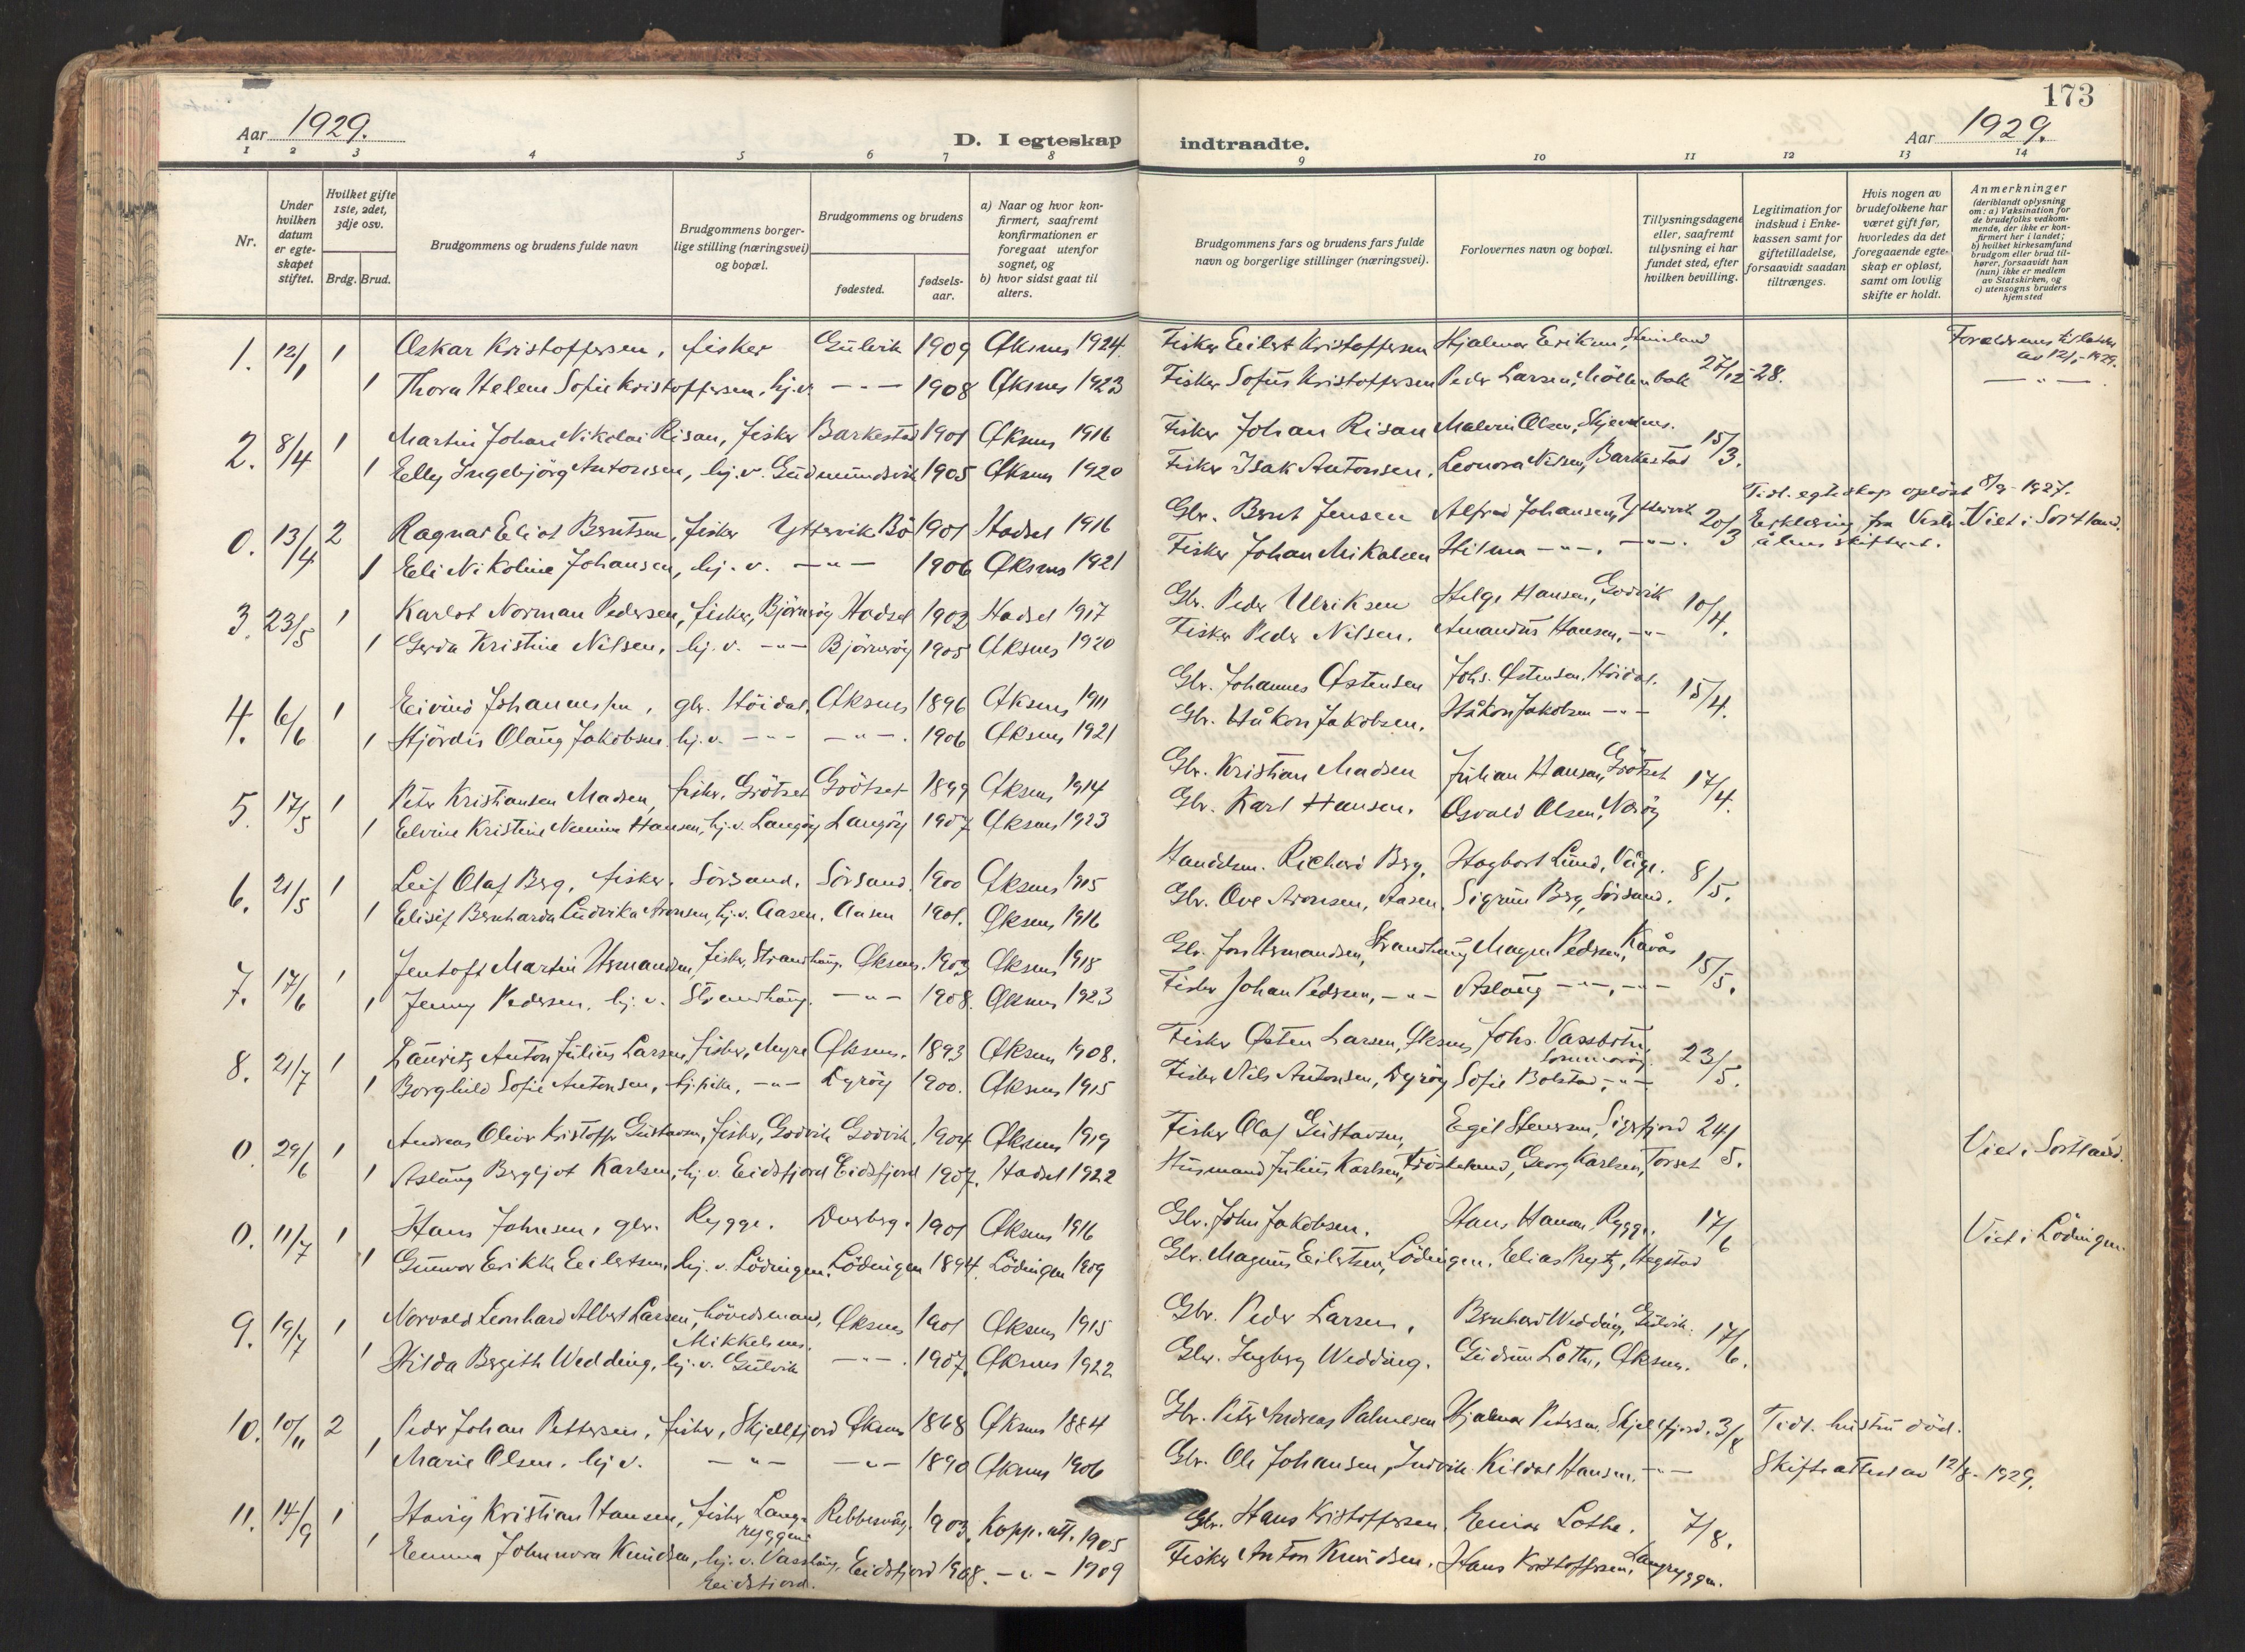 173
Aar 1929. D. I egteskap indtraadte. Aar 1929.
1 2 3 4 5 6 7 8 9 10 11 12 13 14
Nr.
Under hvilken datum er egteskapet stiftet.
Hvilket gifte 1ste, 2det, 3dje osv.
Brdg. Brud.
Brudgommens og brudens fulde navn
Brudgommens borgerlige stilling (næringsvei) og bopæl.
Brudgommens og brudens
fødested.
fødselsaar.
a) Naar og hvor konfirmert, saafremt konfirmationen er foregaat utenfor sognet, og
b) hvor sidst gaat til alters.
Brudgommens fars og brudens fars fulde navn og borgerlige stillinger (næringsvei).
Forlovernes navn og bopæl.
Tillysningsdagene eller, saafremt tillysning ei har fundet sted, efter hvilken bevilling.
Legitimation for indskud i Enkekassen samt for giftetilladelse, forsaavidt saadan tiltrænges.
Hvis nogen av brudefolkene har været gift før, hvorledes da det foregaaende egteskap er opløst, samt om lovlig skifte er holdt.
Anmerkninger (deriblandt oplysning om: a) Vaksination for de brudefolks vedkommende, der ikke er konfirmert her i landet; b) hvilket kirkesamfund brudgom eller brud tilhører, forsaavidt han (hun) ikke er medlem av Statskirken, og c) utensogns bruders hjemsted
1. 12/1 1 Oskar Kristoffersen, fisker Gulvik 1909 Øksnes 1924. Fisker Eilert Kristoffersen Hjalmar Eriksen, Steinland 27/12-28. av 12/1-1929.
1 Thora Helene Sofie Kristoffersen, hj.v. -"- 1908 Øksnes 1923 Fisker Sofus Kristoffersen Peder Larsen, -"-
2. 8/4 1 Martin Johan Nikolai Risan, fisker Barkestad 1901 Øksnes 1916 Fisker Johan Risan Malvin Olsen, 15/3.
1 Elly Ingebjörg Antonsen, hj.v. Gudmundsvik 1905 Øksnes 1920 Fisker Isak Antonsen. Leonora Nilsen, Barkestad
Tidl. egteskap opløst 8/9-1927.
0. 13/4 2 Ragnar Eliot Berntsen, fisker Yttervik Bö 1901 Hadsel 1916 Gbr. Bernt Jensen Alfred Johansen, Yttervik 20/3 Erklæring fra Viet i Sortland.
1 Eli Nikoline Johansen, hj.v. -"- 1906 Øksnes 1921 Fisker Johan Mikalsen Hilma -"-. -"-.
3. 23/5 1 Karlot Norman Pedersen, fisker, Björnröy Hadsel 1902 Hadsel 1917 Gbr. Peder Ulriksen Helge Hansen, Godvik 10/4.
1 Gerda Kristine Nilsen, hj.v. -"- Björnröy 1905 Øksnes 1920 Fisker Peder Nilsen. Amandus Hansen, -"-
4. 6/6 1 Eivind Johannessen, gbr. Höidal, Øksnes 1896 Øksnes 1911 Gbr. Johannes Østensen Johs. Østensen, Höidal. 15/4.
1 Hjördis Olaug Jakobsen hj.v. -"- -"-. 1906 Øksnes 1921 Gbr. Håkon Jakobsen. Håkon Jakobsen -"-
5. 17/5 1 Peter Kristiansen Madsen, fisker, Grötset Grötset 1899 Øksnes 1914 Gbr. Kristian Madsen Julian Hansen, Grötset 17/4.
1 Elvine Kristine Hansen, hj.v. Langöy Langöy 1907 Øksnes 1923 Gbr. Karl Hansen. Osvald Olsen,
6. 21/5 1 Leif Olaf Berg, fisker. Sörsand. Sörsand. 1900 Øksnes 1915 Handelsm. Richard Berg. Hagbart Lund, Våge. 8/5.
1 Elisif Bernharda Ludvika Aronsen, hj.v. Aasen. Aasen 1901. Øksnes 1916 Gbr. Ove Aronsen, Aasen. Sigrun Berg, Sörsand.
7. 17/6 1 Jentoft Martin Hermandsen, fisker, Strandhaug. Øksnes. 1903 Øksnes 1918 Gbr. Jon Hermandsen, Strandhaug Magna Pedersen, Kavås 15/5.
1 Jenny Pedersen, hj.v. Strandhaug. -"- 1908. Øksnes 1923 Fisker Johan Pedersen, -"- Aslaug -"-, -"-
8. 21/7 1 Lauritz Anton Julius Larsen, fisker, Myre Øksnes. 1893 Øksnes 1908. Fisker Østen Larsen, Øksnes Johs. Vassbotn, 23/5.
1 Borghild Sofie Antonsen, -"- Dyröy 1900. Øksnes 1915 Fisker Nils Antonsen, Dyröy Sofie Bolstad, -"-
0. 29/6 1 Andreas Oliver Kristoffer Gustavsen, fisker, Godvik Godvik. 1904 Øksnes 1919 Fisker Olaf Gustavsen, Egil Stenersen, Sigerfjord 24/5. Viet i Sortland.
1 Aslaug Bergljot Karlsen, hj.v. Eidsfjord Eidsfjord 1907. Hadsel 1922 Husmand Julius Karlsen, Georg Karlsen, Torset
0. 11/7 1 Hans Johnsen, gbr. Rygge. Dverberg. 1901 Øksnes 1916 Gbr. John Jakobsen. Hans Hansen, Rygge. 17/6 Viet i Lödingen.
1 Gunvor Erikka Eilertsen, hj.v. Lödingen. Lödingen 1894. Lödingen 1909 Gbr. Magnus Eilertsen, Lödingen. Elias Hegstad
9. 19/7 1 Norvald Leonhard Albert Larsen, hövedsmand, Øksnes 1901 Øksnes 1915 Gbr. Peder Larsen. Bernhard Wedding, Gulvik. 17/6.
Mikkelsnes.
1 Hilda Bergith Wedding, hj.v. Gulvik -"-. 1907. Øksnes 1922 Gbr. Ingberg Wedding. Gudrun Lothe, Øksnes.
10. 10/11 2 Peder Johan Pettersen, fisker, Skjellfjord Øksnes 1868 Øksnes 1884 Gbr. Peter Andreas Hjalmar Petersen, Skjellfjord. 3/8 Tidl. hustru död.
1 Marie Olsen. hj.v. -"- -"- 1890 Øksnes 1906 Gbr. Ole Johansen, Kildal Hansen, -"- Skifteattest av 12/8-1929.
11. 14/9 1 Hartvig Kristian Hansen, fisker Lang-ryggen 1903. Kopp. att. 1905 Gbr. Hans Kristoffersen. Einar Lothe. 7/8.
1 Emma Johnnora Knudsen, hj.v. Eidsfjord 1908. -"- 1909 Fisker Anton Knudsen. Hans Kristoffersen, Langryggen.
Eidsfjord.